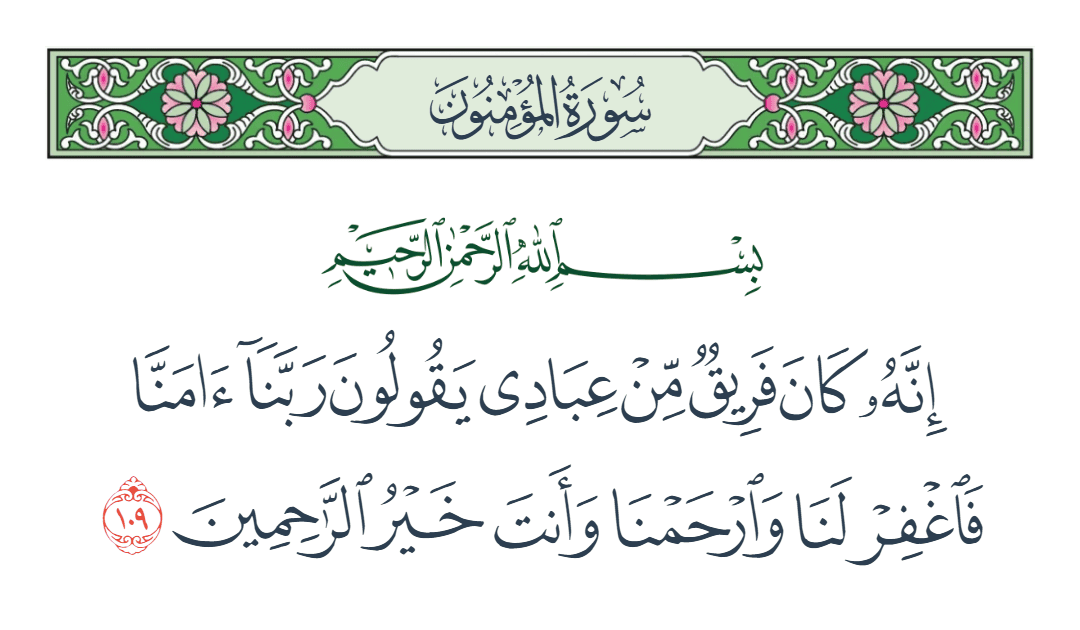 سُورَةُ المُؤْمِنُونَ
بِسْمِ ٱللَّهِ ٱلرَّحْمَٰنِ ٱلرَّحِيمِ
إِنَّهُۥ كَانَ فَرِيقٌ مِّنْ عِبَادِى يَقُولُونَ رَبَّنَآ ءَامَنَّا
فَٱغْفِرْ لَنَا وَٱرْحَمْنَا وَأَنتَ خَيْرُ ٱلرَّٰحِمِينَ ١٠٩